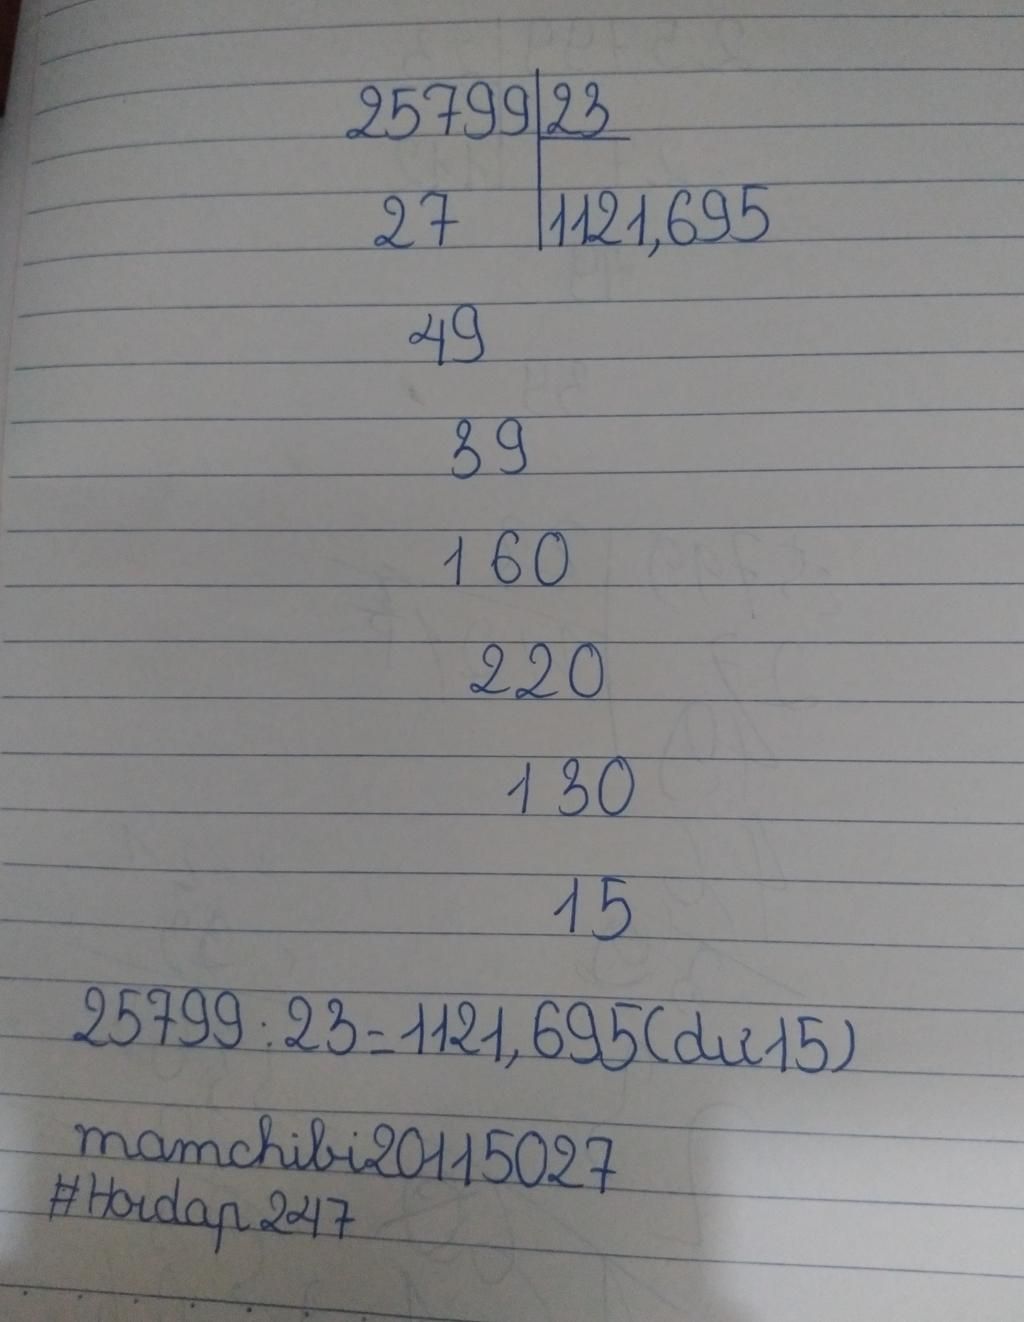 25799 23
27 1121,695
49
39
160
220
130
15
25799 : 23 = 1121,695 (dư 15)
mamchibi20115027
#Hoidap247